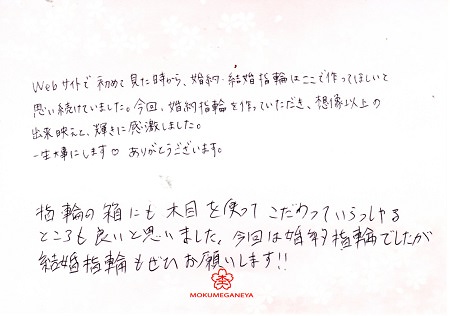 Webサイトで初めて見た時から、婚約・結婚指輪はここで作ってほしいと
思い続けていました。今回、婚約指輪を作っていただき、想像以上の
出来映えと、輝きに感激しました。
一生大事にします♡ ありがとうございます。
指輪の箱にも木目を使って こだわっていらっしゃる
ところも良いと思いました。今回は婚約指輪でしたが
結婚指輪もぜひお願いします!!
MOKUMEGANEYA